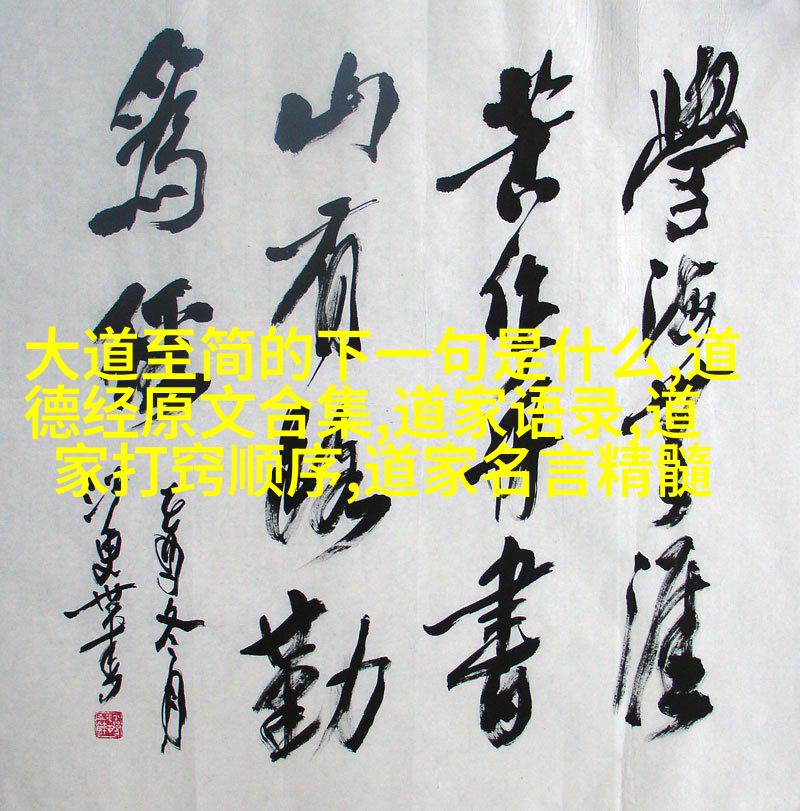 大道至简的下一句是什么,道
德经原文合集,道家语录,道
家打窍顺序,道家名言精髓
學海無涯
苦作舟書
山有路勤
為徑
冬月